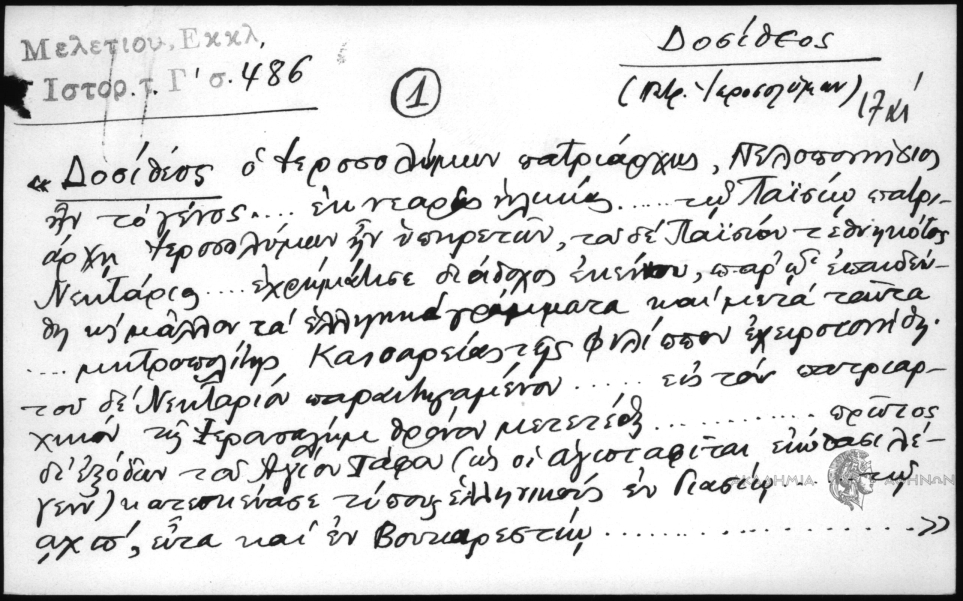 Μελετιου, Εκκλ,
Ιστορ. τ. Γ' σ. 486
Δοσίθεος
(Πτρ. Ἱεροσολύμων)
①
« Δοσίθεος ὁ Ἱεροσολύμων πατριάρχης, Πελοποννήσιος
ἦν τὸ γένος.... ἐκ νεαρᾶς ἡλικίας ..... τῷ Παϊσίῳ πατρι-
άρχῃ Ἱεροσολύμων ἦν ὑπηρετῶν, τοῦ δὲ Παϊσίου τεθνηκότος
Νεκτάριος .... ἐχρημάτισε διάδοχος ἐκείνου, παρ' ᾧ ἐπαιδεύ-
θη κỳ μᾶλλον τὰ ἑλληνικὰ γράμματα καὶ μετὰ ταῦτα
.... μητροπολίτης Καισαρείας τῆς Φιλίππου ἐχειροτονήθη.
τοῦ δὲ Νεκταρίου παραιτησαμένου ..... εἰς τὸν πατριαρ-
χικὸν τῆς Ἱερουσαλὴμ θρόνον μετετέθη ............ πρῶτος
δι' ἐξόδων τοῦ Ἁγίου Τάφου (ὡς οἱ ἁγιοταφῖται εἰώθασι λέ-
γειν) κατεσκεύασε τύπους ἑλληνικοὺς ἐν Γιασίῳ .. τῷ
αχπ', εἶτα καὶ ἐν Βουκαρεστίῳ .................. »
ΑΚΑΔΗΜΙΑ ΑΘΗΝΩΝ